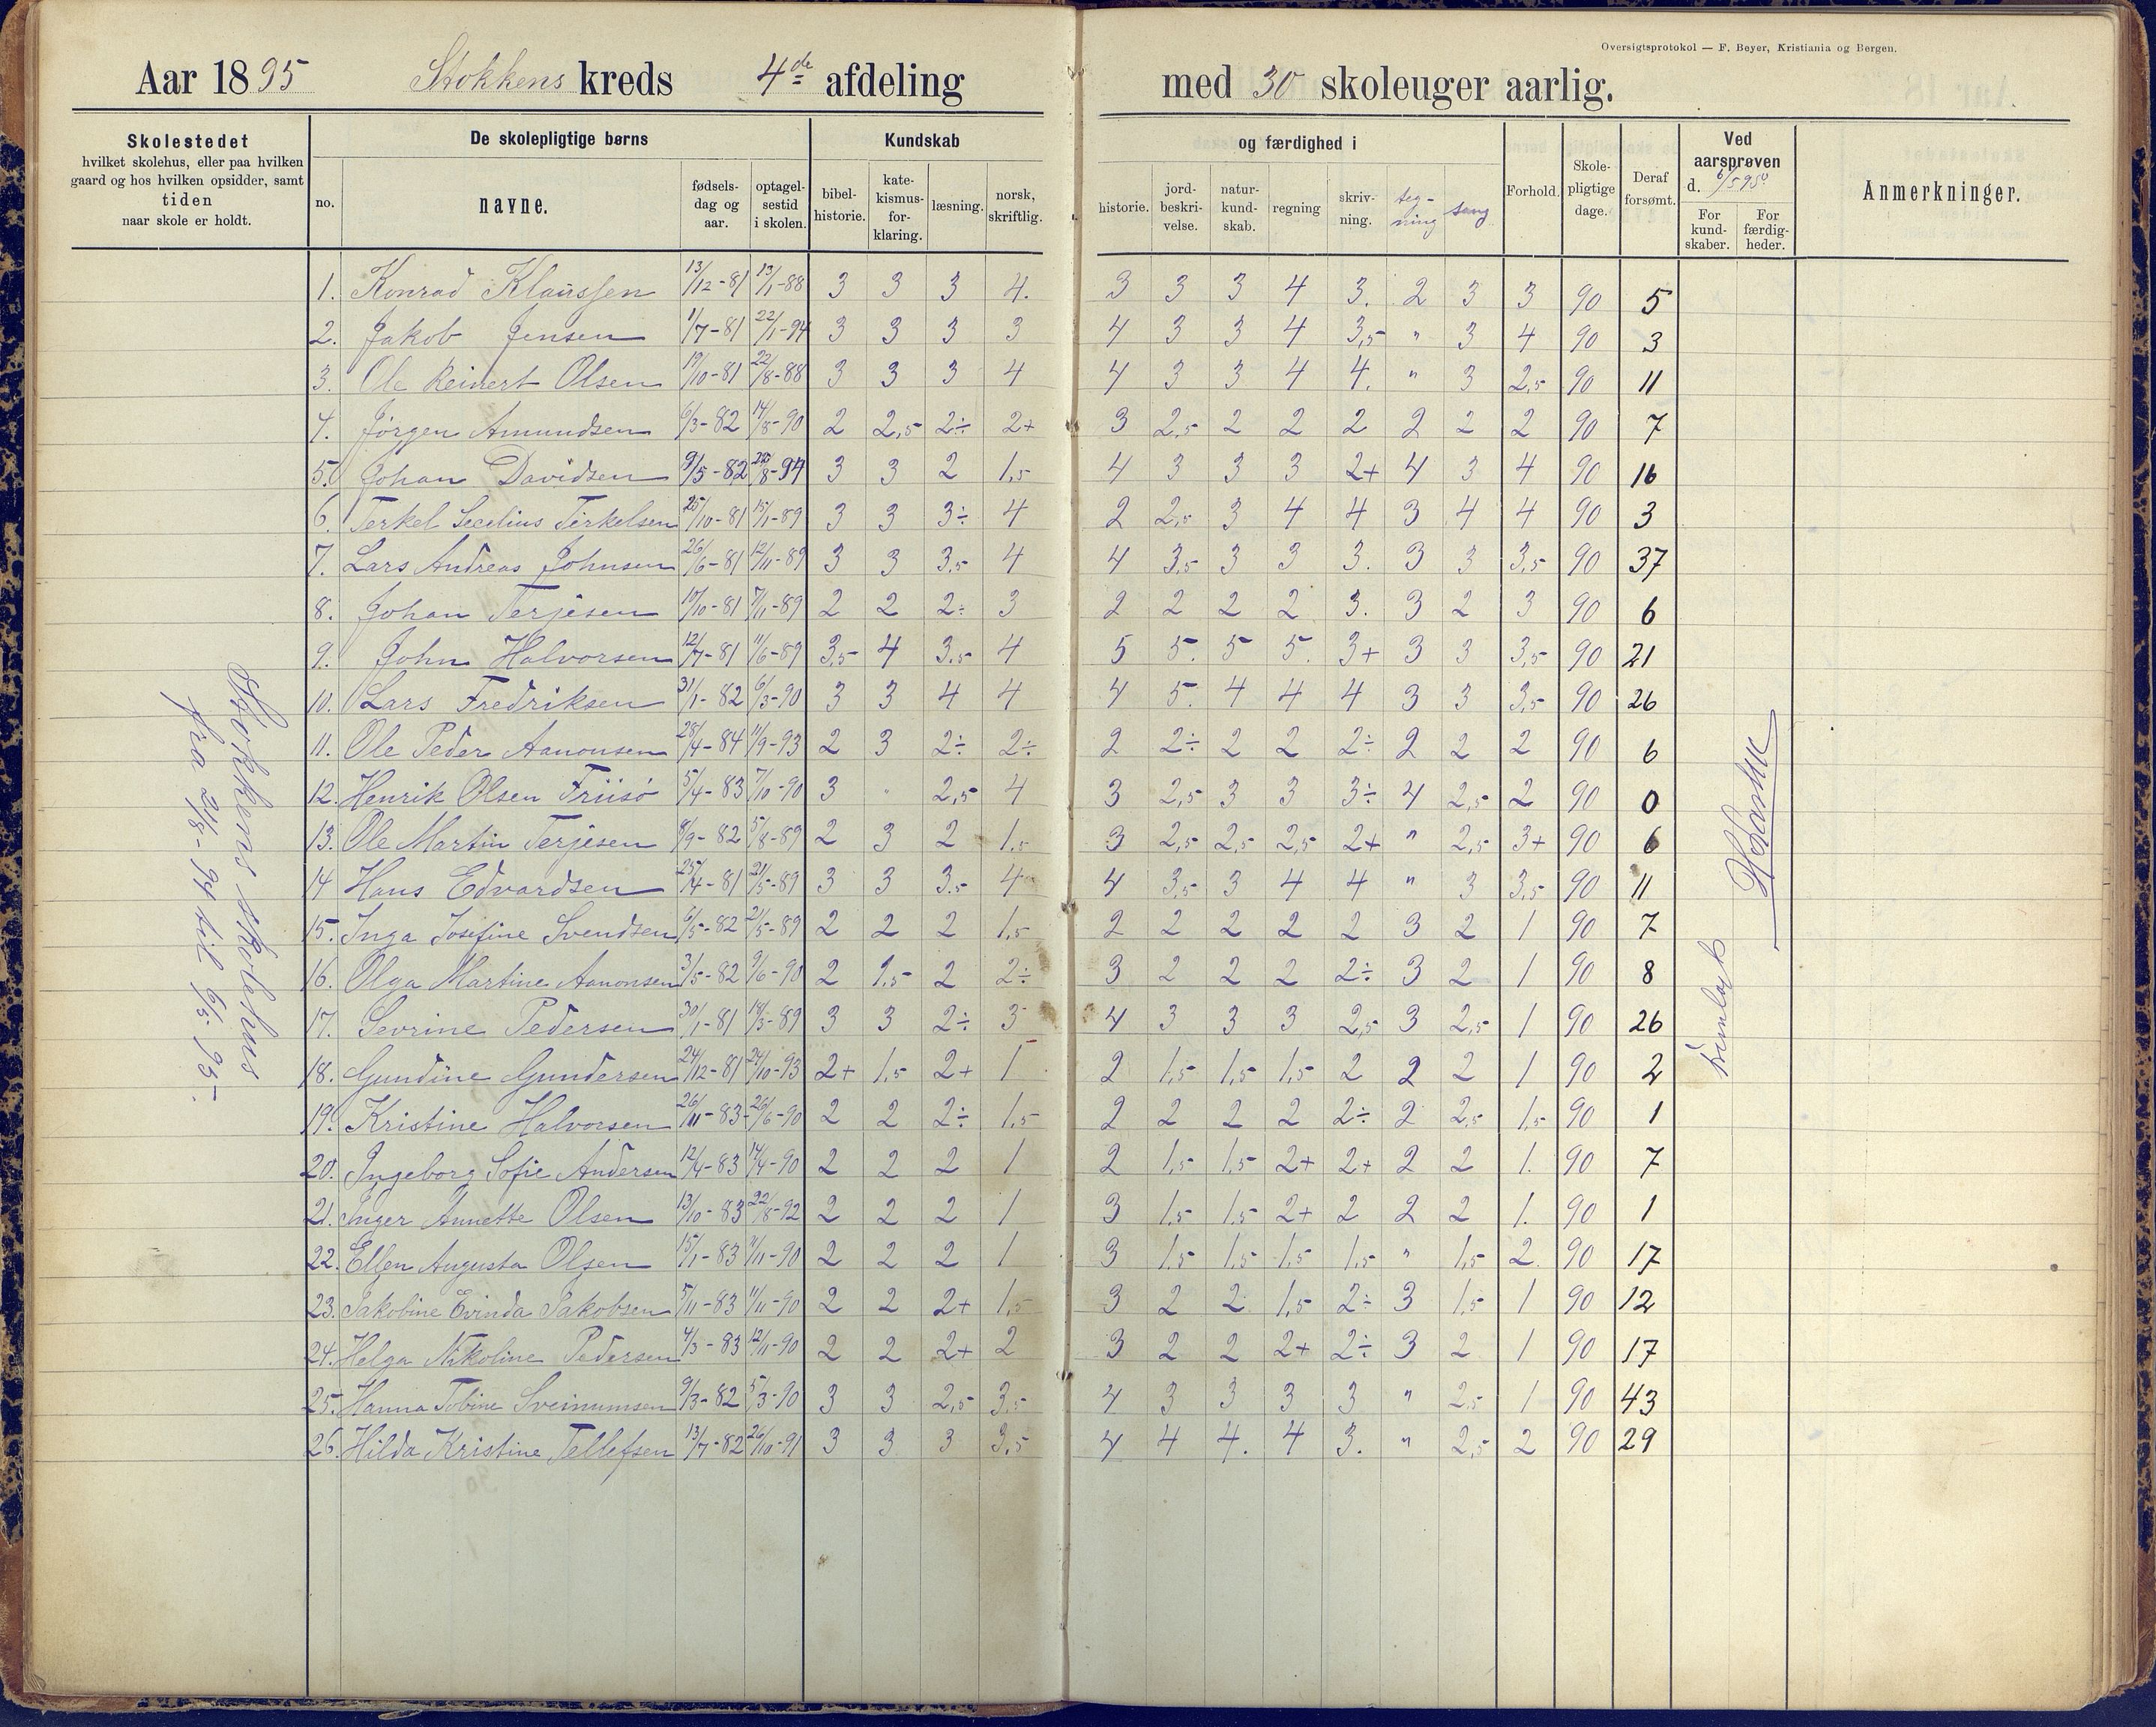 Oversigtsprotokol — F. Beyer, Kristiania og Bergen.
Aar 1895 Stokkens kreds 4de afdeling med 30 skoleuger aarlig.
Skolestedet
hvilket skolehus, eller paa hvilken
gaard og hos hvilken opsidder, samt
tiden
naar skole er holdt.
De skolepligtige børns
no. navne. fødsels-dag og aar. optagel-sestid i skolen.
Kundskab og færdighed i
bibel-historie. kate-kismus-for-klaring. læsning. norsk, skriftlig. historie. jord-beskri-velse. natur-kund-skab. regning skriv-ning. teg-ning sang
Forhold. Skole-pligtige dage. Deraf forsømt.
Ved aarsprøven
d. 6/5 95
For kund-skaber. For færdig-heder.
Anmerkninger.
1. Konrad Klaussen 13/12-81 13/1-88 3 3 3 4. 3 3 3 4 3. 2 3 3 90 5
2. Jakob Jensen 1/7-81 22/1-94 3 3 3 3 4 3 3 4 3,5 " 3 4 90 3
3. Ole Reinert Olsen 19/10-81 22/8-88 3 3 3 4 4 3 3 4 4. " 3 2,5 90 11
4. Jörgen Amundsen 6/3-82 14/8-90 2 2,5 2÷ 2+ 3 2,5 2 2 2 2 2 2 90 7
5. Johan Davidsen 9/5-82 22/8-94 3 3 2 1,5 4 3 3 3 2+ 4 3 4 90 16
6. Terkel Secelius Terkelsen 25/10-81 15/1-89 3 3 3÷ 4 2 2,5 3 4 4 3 4 4 90 3
7. Lars Andreas Johnsen 26/6-81 12/11-89 3 3 3,5 4 4 3,5 3 3 3. 3 3 3,5 90 37
8. Johan Terjesen 10/10-81 7/11-89 2 2 2÷ 3 2 2 2 2 3. 3 2 3 90 6
9. John Halvorsen 12/7-81 11/6-89 3,5 4 3,5 4 5 5. 5 5. 3+ 3 3 3,5 90 21
10. Lars Fredriksen 31/1-82 6/3-90 3 3 4 4 4 5. 4 4 4 3 3 3,5 90 26
11. Ole Peder Aanonsen 28/4-84 11/9-93 2 3 2÷ 2÷ 2 2÷ 2 2 2÷ 2 2 2 90 6
12. Henrik Olsen Friisö 5/4-83 7/10-90 3 " 2,5 4 3 2,5 3 3 3÷ 4 2,5 2 90 0
13. Ole Martin Terjesen 8/9-82 5/8-89 2 3 2 1,5 3 2,5 2,5 2,5 2+ " 2,5 3+ 90 6
14 Hans Edvardsen 25/4-81 21/5-89 3 3 3,5 4 4 3,5 3 4 4 " 3 3,5 90 11
15. Inga Josefine Svendsen 6/5-82 21/5-89 2 2 2 1,5 2 2 2 2 2 3 2 1 90 7
16. Olga Martine Aanonsen 3/5-82 9/6-90 2 1,5 2 2÷ 3 2 2 2 2÷ 3 2 1 90 8
17. Sevrine Pedersen 30/1-81 18/3-89 3 3 2÷ 3 4 3 3 3 2,5 3 2,5 1 90 26
18. Gundine Gundersen 24/12-81 24/10-93 2+ 1,5 2+ 1 2 1,5 1,5 1,5 2 2 2 1 90 2
19. Kristine Halvorsen 26/11-83 26/6-90 2 2 2÷ 1,5 2 2 2 2 2÷ 2 2,5 1,5 90 1
20. Ingeborg Sofie Andersen 12/4-83 14/4-90 2 2 2 1 2 1,5 1,5 2+ 2+ 2 2 1. 90 7
21. Inger Annette Olsen 13/10-83 22/8-92 2 2 2 1 3 1,5 1,5 2+ 2 2 2 1. 90 1
22. Ellen Augusta Olsen 15/1-83 11/11-90 2 2 2 1 3 1,5 1,5 1,5 1,5 " 1,5 2. 90 17
23. Jakobine Evinda Jakobsen 5/11-83 11/11-90 2 2 2+ 1,5 3 2 2 1,5 2÷ 3 1,5 1 90 12
24. Helga Nikoline Pedersen 4/3-83 12/11-90 2 2 2+ 2 3 2 2 2+ 2÷ 3 2 1 90 17
25. Hanna Tobine Sveinumsen 9/3-82 5/3-90 3 3 2,5 3,5 4 3 3 3 3 " 2,5 1 90 43
26. Hilda Kristine Tellefsen 13/7-82 26/10-91 3 3 3 3,5 4 4 4. 4 3. " 2,5 2 90 29
Stokkens skolehus
fra 21/8-94 til 6/5-95.
fremlagt